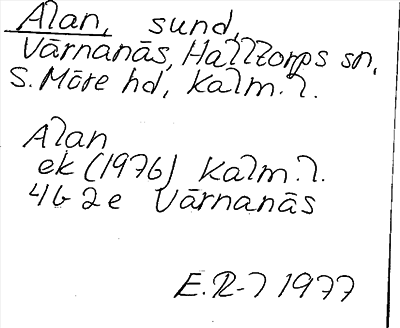 Alan, sund,
Värnanäs, Halltorps sn,
S. Möre hd, Kalm. l.
Alan
ek (1976) Kalm. l.
4G 2e Värnanäs
E.R-7 1977